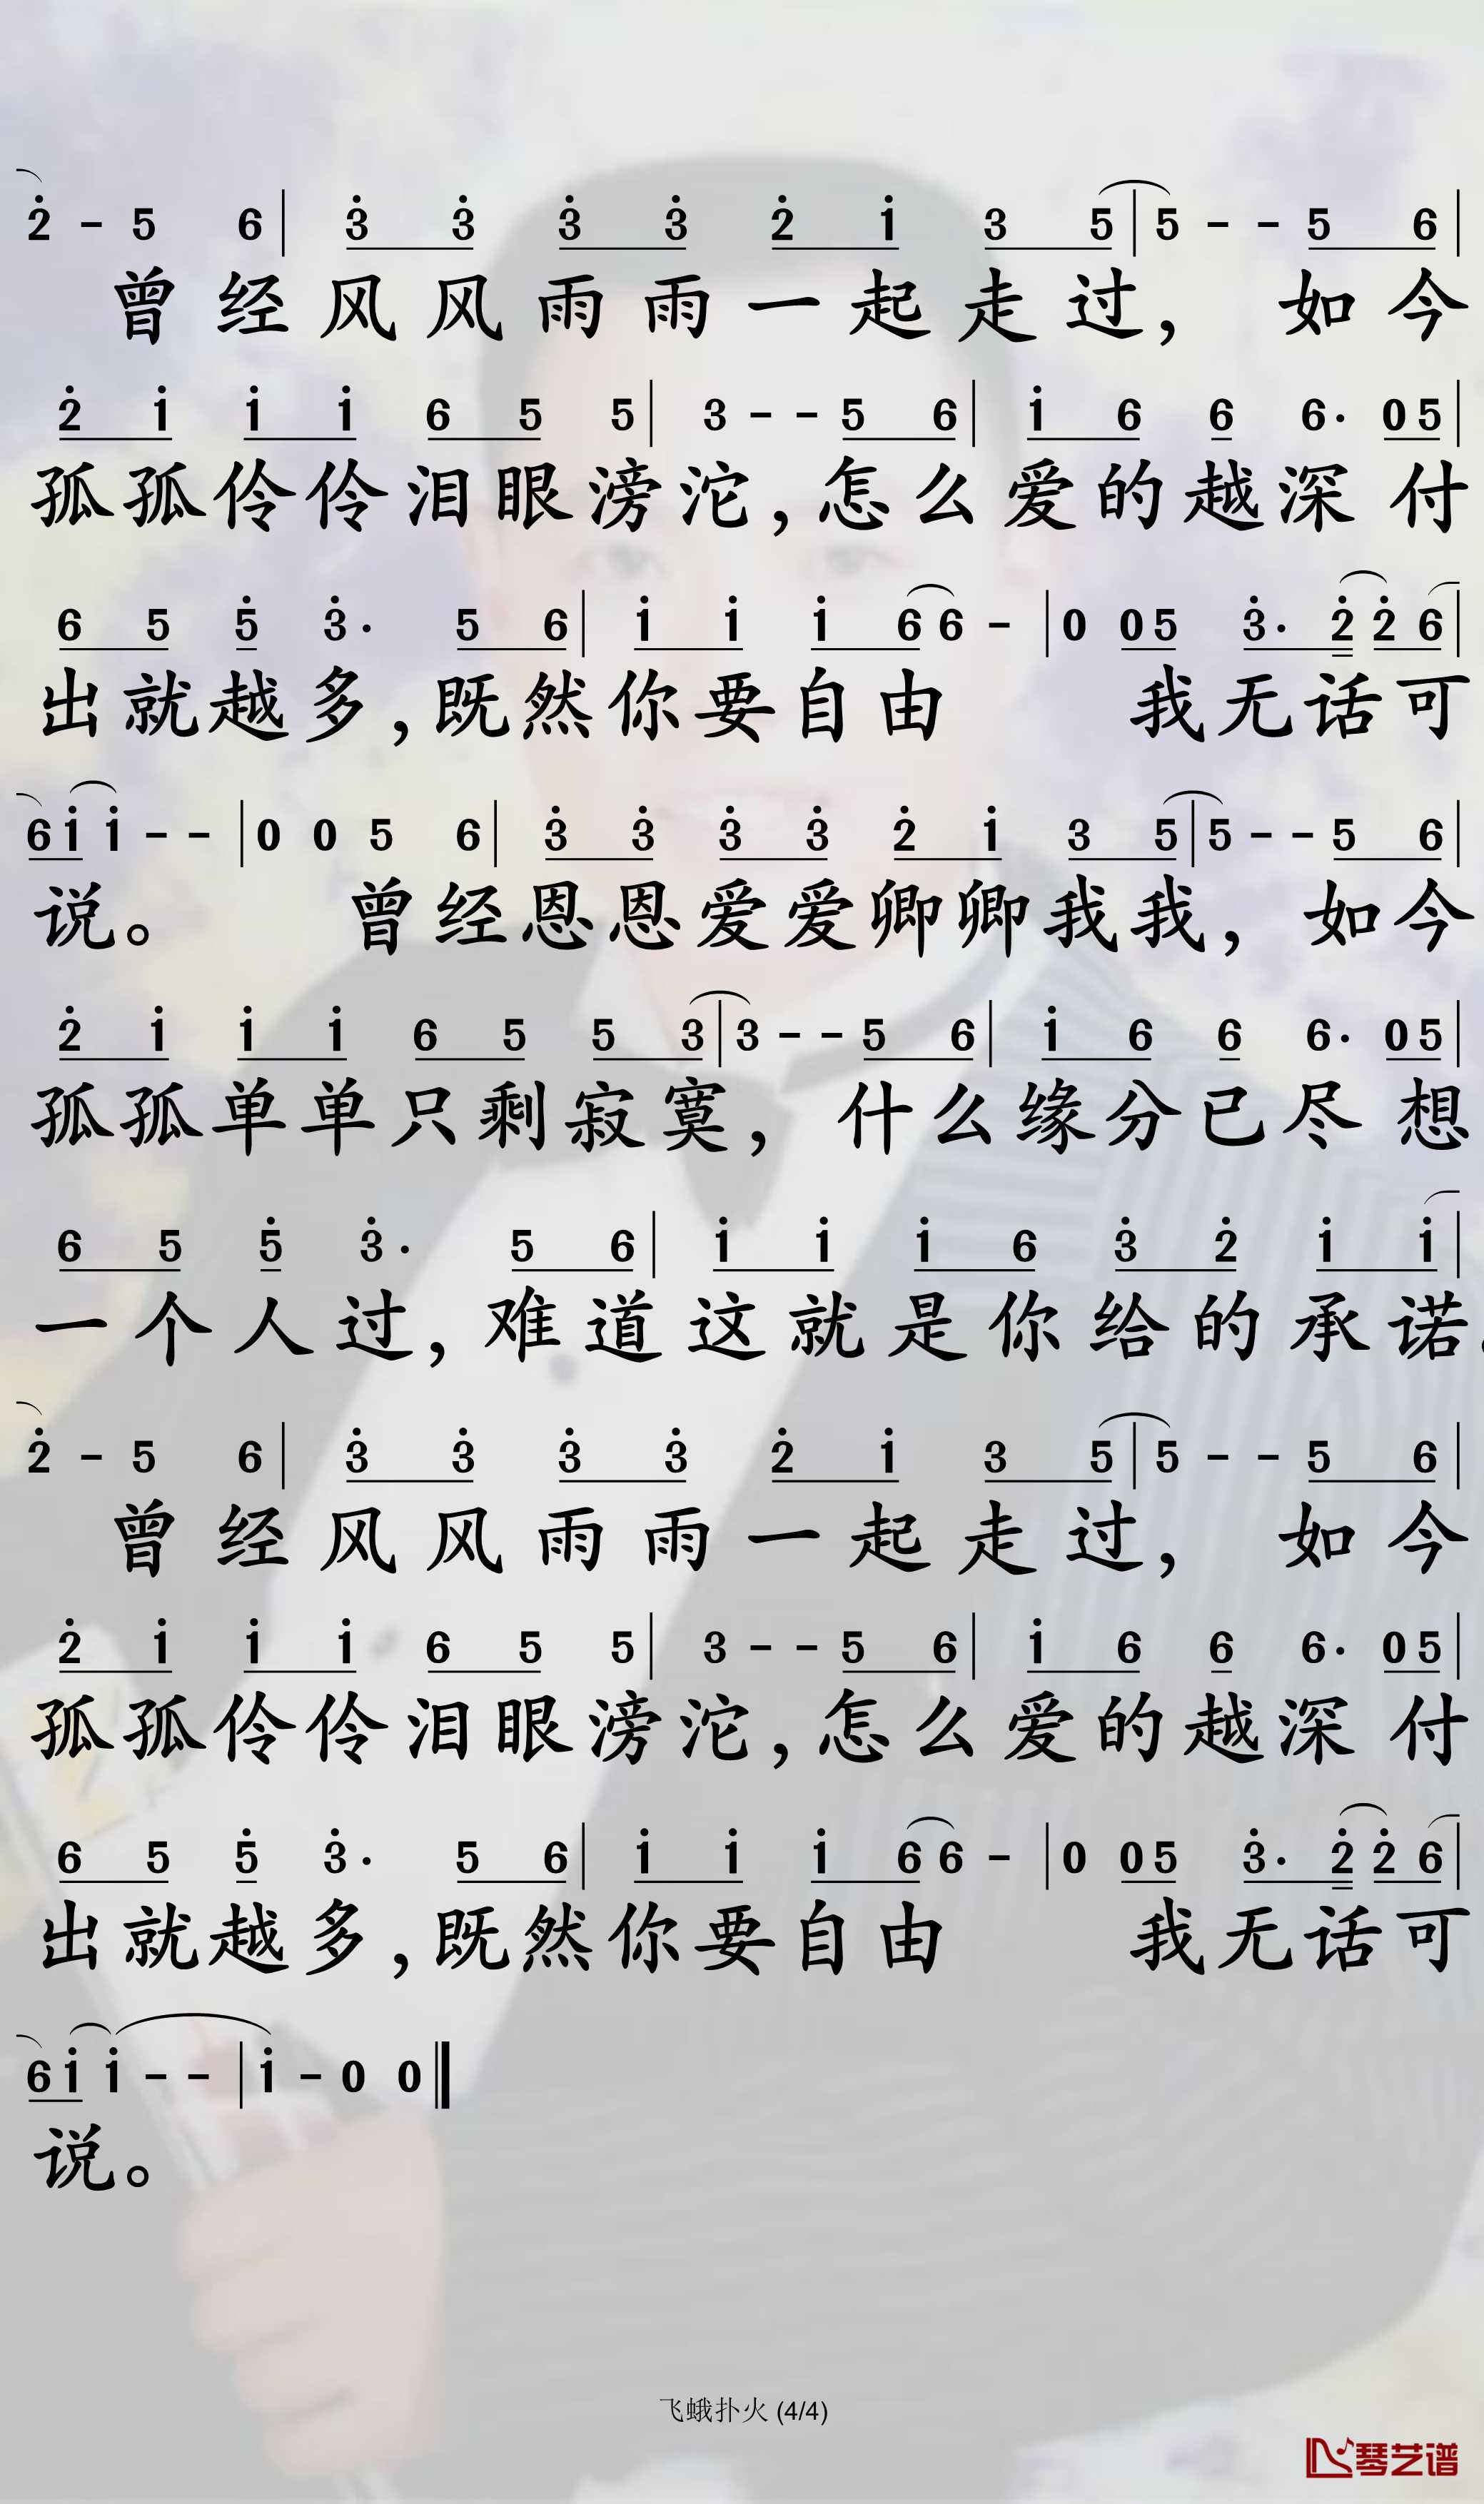 2̇ - 5 6 | 3̇ 3̇ 3̇ 3̇ 2̇ 1̇ 3 5 | 5 - - 5 6 |
曾经风风雨雨一起走过，如今
2̇ 1̇ 1̇ 1̇ 6 5 5 | 3 - - 5 6 | 1̇ 6 6 6· 0 5 |
孤孤伶伶泪眼滂沱，怎么爱的越深 付
6 5 5̇ 3̇· 5 6 | 1̇ 1̇ 1̇ 6 6 - | 0 0 5 3̇· 2̇ 2̇ 6 |
出就越多，既然你要自由 我无话可
6 1̇ 1̇ - - | 0 0 5 6 | 3̇ 3̇ 3̇ 3̇ 2̇ 1̇ 3 5 | 5 - - 5 6 |
说。 曾经恩恩爱爱卿卿我我，如今
2̇ 1̇ 1̇ 1̇ 6 5 5 3 | 3 - - 5 6 | 1̇ 6 6 6· 0 5 |
孤孤单单只剩寂寞，什么缘分已尽 想
6 5 5̇ 3̇· 5 6 | 1̇ 1̇ 1̇ 6 3̇ 2̇ 1̇ 1̇ |
一个人过，难道这就是你给的承诺。
2̇ - 5 6 | 3̇ 3̇ 3̇ 3̇ 2̇ 1̇ 3 5 | 5 - - 5 6 |
曾经风风雨雨一起走过，如今
2̇ 1̇ 1̇ 1̇ 6 5 5 | 3 - - 5 6 | 1̇ 6 6 6· 0 5 |
孤孤伶伶泪眼滂沱，怎么爱的越深 付
6 5 5̇ 3̇· 5 6 | 1̇ 1̇ 1̇ 6 6 - | 0 0 5 3̇· 2̇ 2̇ 6 |
出就越多，既然你要自由 我无话可
6 1̇ 1̇ - - | 1̇ - 0 0 ‖
说。
飞蛾扑火 (4/4)
琴艺谱